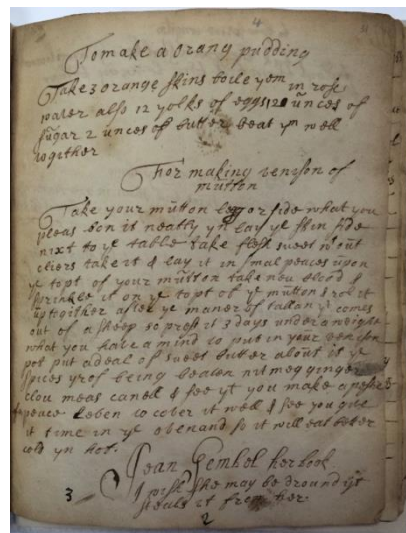 4
To make a orang pudding
Take 3 orange skins boile yem in rose
water also 12 yolks of eggs 12 unces of
sugar 2 unces of butter beat yn well
togither
For making venison of
mutton
Take your mutton leg or side what you
pleas bon it neatly yn lay ye skin side
nixt to ye table take flesh sweet mout
cliers take it & lay it in smal peaces upon
ye topt of your mutton take new blood &
sprinkle it on ye topt of ye mutton & rol it
up togither after ye maner of tallon yt comes
out of a sheep so press it 3 days under a weight
what you have a mind to put in your venison
pot put a deal of sweet butter about it ye
spices yrof being beaten nitmeg ginger
clou meas canell & see yt you make a
peace leben to cover it well & see you give
it time in ye oven and so it will eat better
cold yn hot.
Jean Gembel her book
I wish she may be dround yt
steals it from her.
3
2